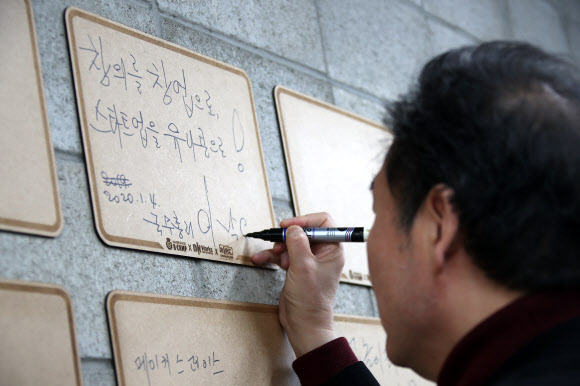 창의를 창업으로,
스타트업을 유니콘으로!
2020.1.4.
국무총리 이낙연
메이커 스페이스